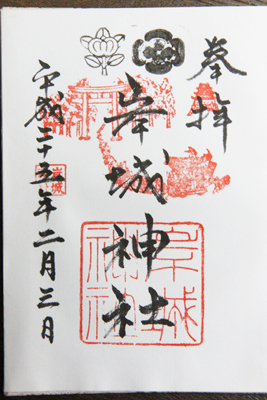 奉拝
岸城神社
平成二十五年二月三日
岸城
岸城神社